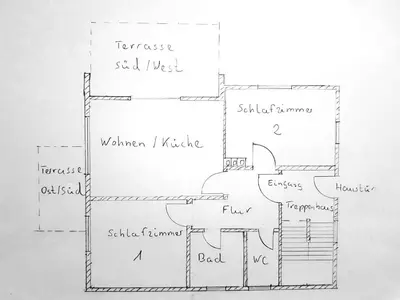 Terrasse
Süd/West
Schlafzimmer
2
Wohnen/Küche
Terrasse
Ost/Süd
Eingang
Haustür
Treppenhaus
Flur
Schlafzimmer
1
Bad
WC